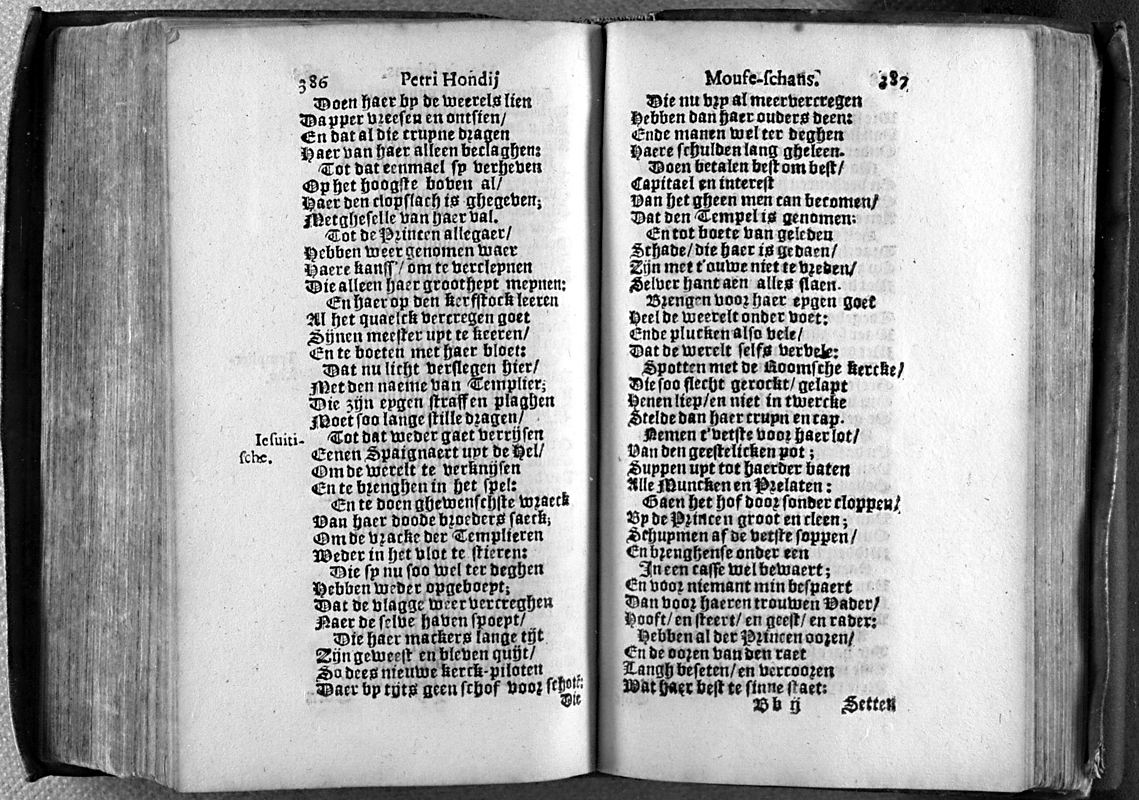 386 Petri Hondij
Doen haer by de weerels lien
Dapper vreesen en ontsien/
En dat al die truyne dragen
Haer van haer alleen beclaghen:
Tot dat eenmael sy verheven
Op het hoogste boven al/
Haer den clopslach is ghegeven;
Metgheselle van haer val.
Tot de Princen allegaer/
Hebben weer genomen waer
Haere kanss'/ om te vercleynen
Die alleen haer grootheyt meynen:
En haer op den kerfstock leeren
Al het quaelck vercregen goet
Sijnen meester uyt te keeren/
En te boeten met haer bloet:
Dat nu licht verslegen hier/
Met den naeme van Templier;
Die zijn eygen straff en plaghen
Moet soo lange stille dragen/
Tot dat weder gaet verrijsen
Eenen Spaignaert uyt de Hel/
Om de werelt te verknijsen
En te brenghen in het spel:
En te doen ghewenschste wraeck
Van haer doode broeders saeck;
Om de vracke der Templieren
Weder in het vlot te stieren:
Die sy nu soo wel ter deghen
Hebben weder opgeboeyt;
Dat de vlagge weer vercreghen
Naer de selve haven spoeyt/
Die haer mackers lange tijt
Zijn geweest en bleven quijt/
So dees nieuwe kerck-piloten
Daer by tijts geen schof voor schoten:
Die
Iesuiti-
sche.
Mouse-schans. 387
Die nu vry al meer vercregen
Hebben dan haer ouders deen:
Ende manen wel ter deghen
Haere schulden lang gheleen.
Doen betalen best om best/
Capitael en interest
Van het gheen men can becomen/
Dat den Tempel is genomen:
En tot boete van geleden
Schade/ die haer is gedaen/
Zijn met t'ouwe niet te vreden/
Selver hant aen alles slaen.
Brengen voor haer eygen goet
Heel de weerelt onder voet:
Ende plucken also vele/
Dat de werelt selfs vervele:
Spotten met de Roomsche kercke/
Die soo slecht gerockt/ gelapt
Henen liep/ en niet in twercke
Stelde dan haer truyn en cap.
Nemen t'vetste voor haer lot/
Van den geestelicken pot;
Suppen uyt tot haerder baten
Alle Muncken en Prelaten:
Gaen het hof door sonder cloppen/
By de Princen groot en cleen;
Schuymen af de vetste soppen/
En brenghense onder een
In een casse wel bewaert;
En voor niemant min bespaert
Dan voor haeren trouwen Vader/
Hooft/ en steert/ en geest/ en rader:
Hebben al der Princen ooren/
En de ooren van den raet
Langh beseten/ en vercooren
Wat haer best te sinne staet:
Bb ij Setten